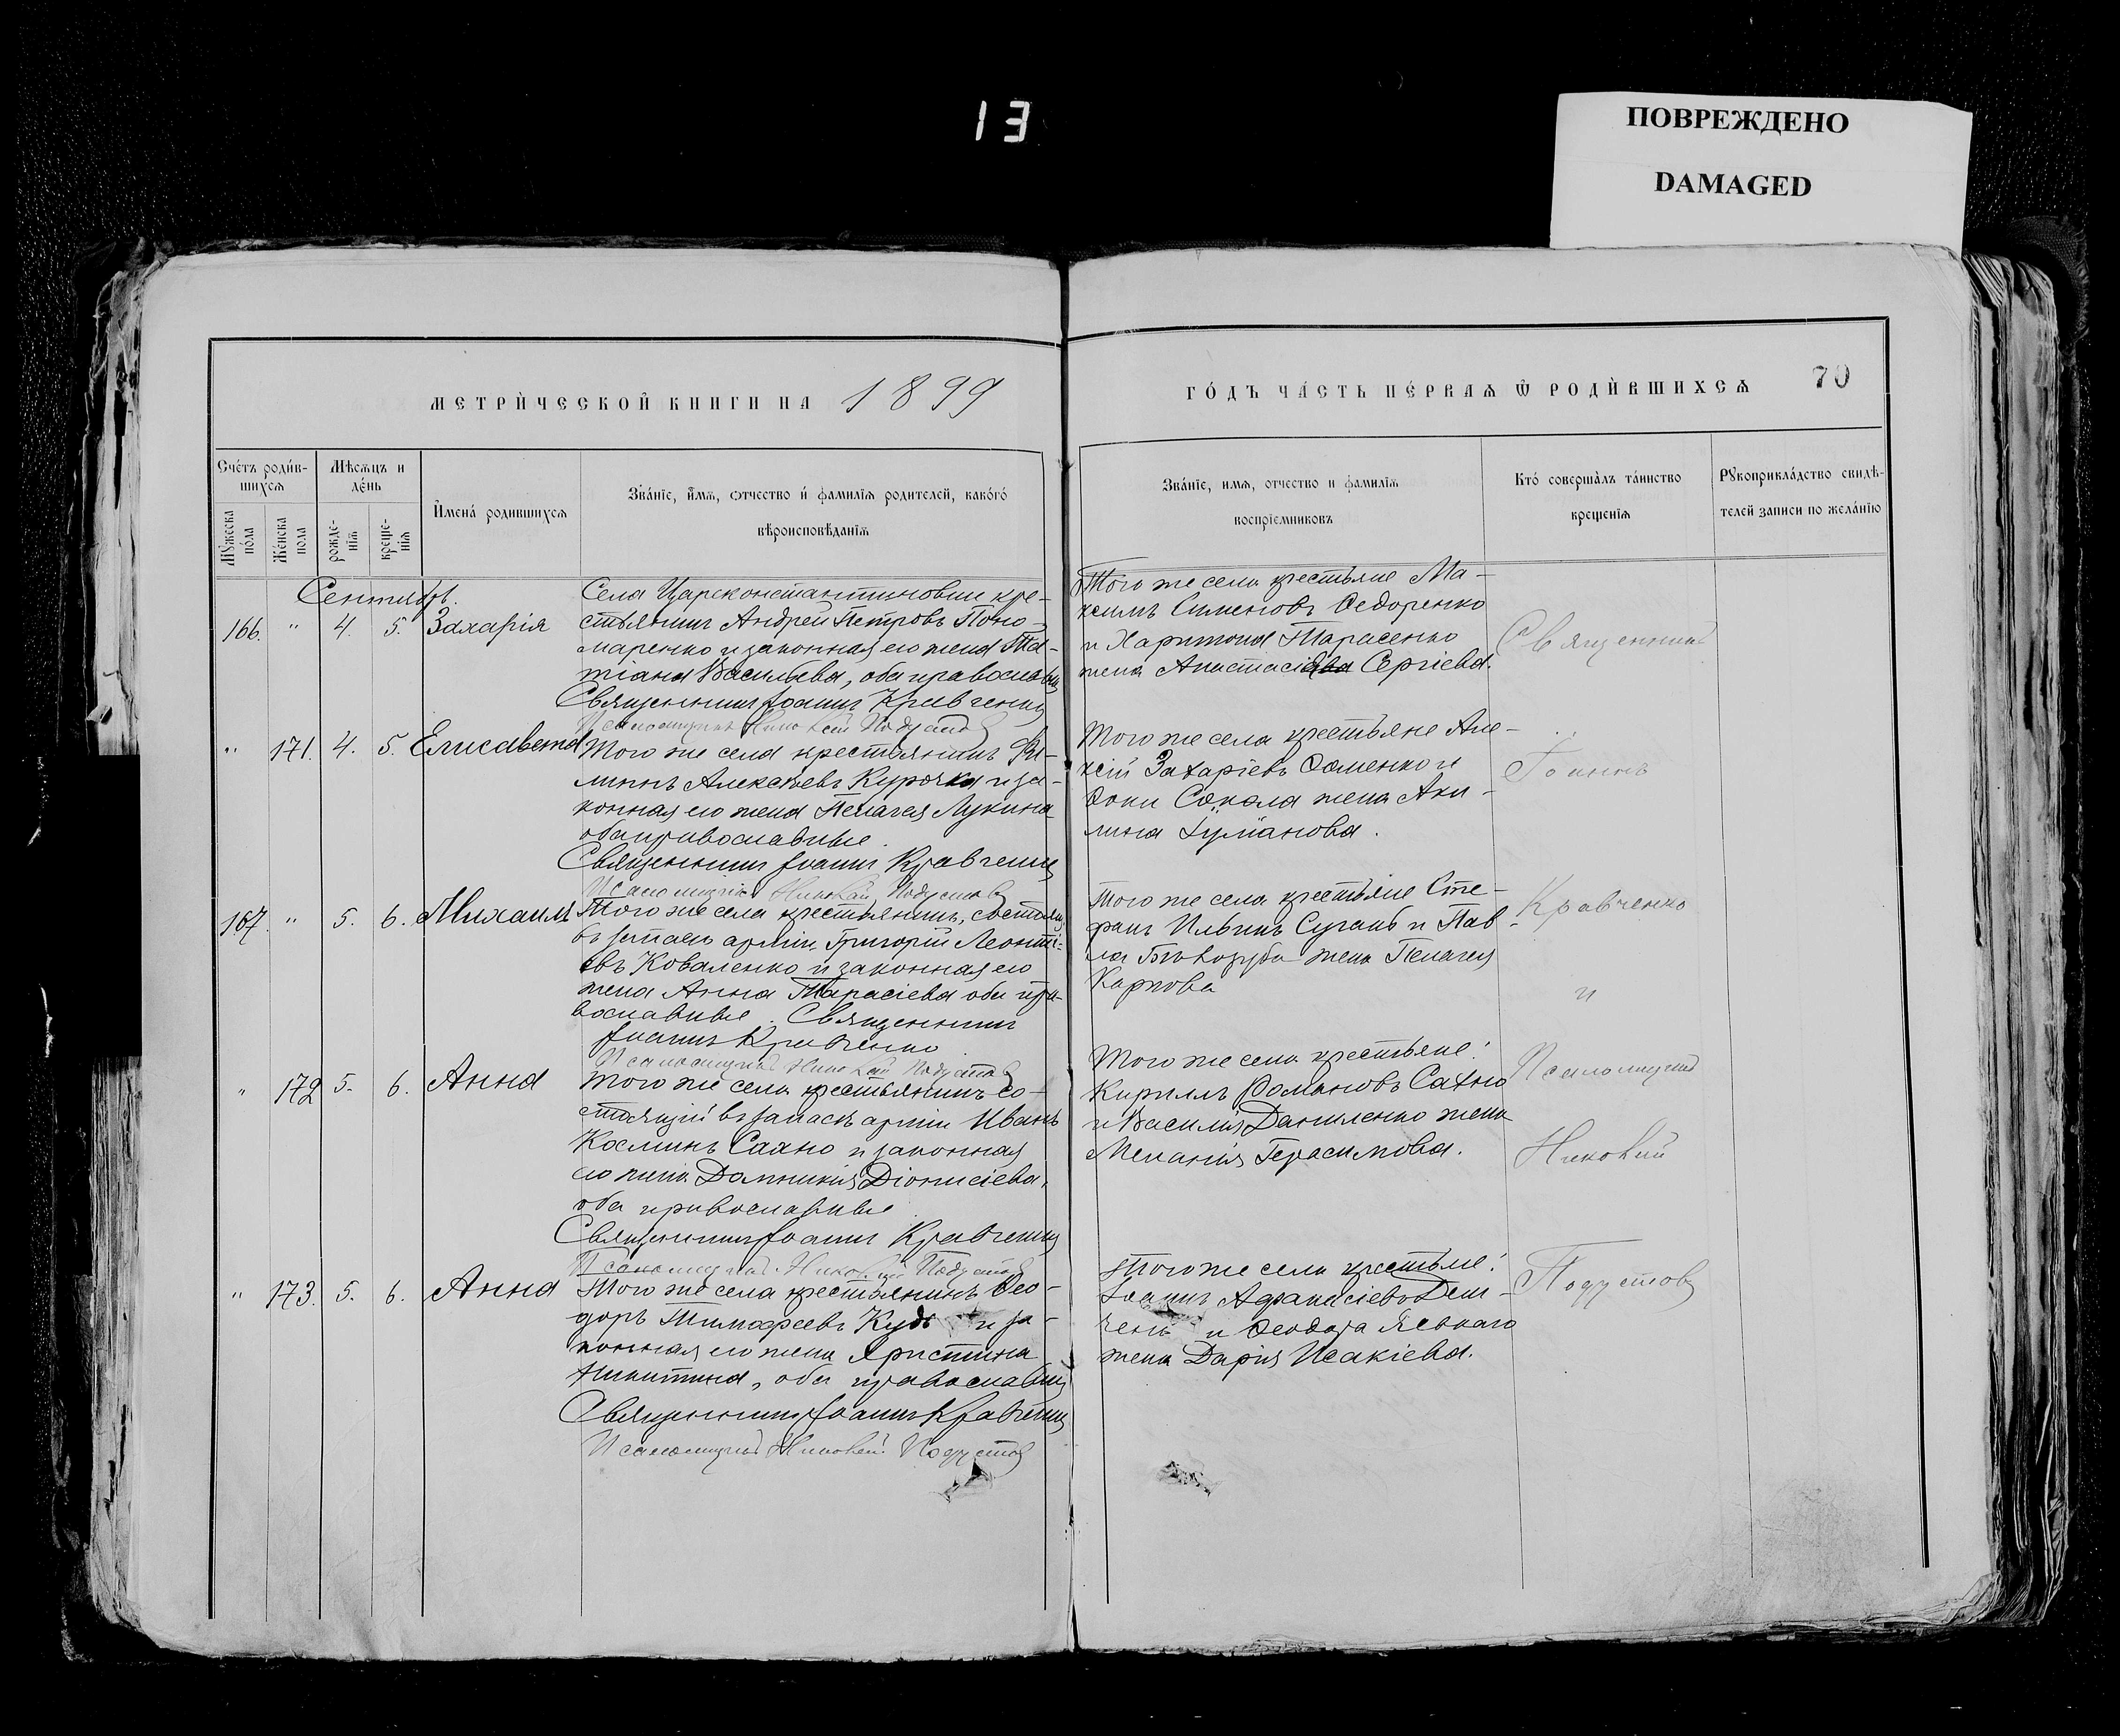 13
ПОВРЕЖДЕНО
DAMAGED
МЕТРИ́ЧЕСКОЙ КНИГИ НА 1899
ГО́ДЪ ЧА́СТЬ ПЕ́РВАѦ Ѿ РОДИ́ВШИХСѦ 70
Сче́тъ роди́в-
шихсѧ
Мѣсѧцъ и
де́нь
Мꙋ́жеска
по́ла
Же́нска
пола
рожде-
нїѧ
креще-
нїѧ
И҆мена̀ родившихсѧ
Зва́нїе, и҆́мѧ, ѻтчество и҆ фамилїѧ родителей, како́гѡ
вѣроисповѣданїѧ
Зва́нїе, имѧ, отчество и фамилїѧ
воспрїемниковъ
Кто́ соверша̀лъ та́инство
крещенїѧ
Рꙋкоприкла́дство свидѣ-
телей записи по жела́нїю
Сентябрь.
166. " 4. 5. Захарія
Села Цареконстантиновки кре-
стьянинъ Андрей Петровъ Поно-
маренко и законная его жена Та-
тіана Васильева, оба православны
Священникъ Іоаннъ Кравченко
Псаломщикъ Николай Подустов
Того же села крестьяне Ма-
ксимъ Симеоновъ Федоренко
и Харитона Тарасенко
жена Анастасія Сергіева.
Священникъ
" 171. 4. 5. Елисавета
Того же села крестьянинъ Фи-
липпъ Алексѣевъ Курочка и за-
конная его жена Пелагея Лукина
оба православные.
Священникъ Іоаннъ Кравченко
Псаломщикъ Николай Подустов
Того же села крестьяне Але-
ксій Захаріевъ Фоменко и
Фоки Сокола жена Аки-
лина
Іоаннъ
167. " 5. 6. Михаилъ
Того же села крестьянинъ, состоящ
въ запасѣ арміи Григорій Леонті-
евъ Коваленко и законная его
жена Анна Тарасіева оба пра-
вославные. Священникъ
Іоаннъ Кравченко
Псаломщикъ Николай Подустов
Того же села крестьяне Сте-
фанъ Ильинъ и Пав-
ла жена Пелагея
Карпова
Кравченко
и
" 172 5. 6. Анна
Того же села крестьянинъ со-
стоящій въ запасѣ арміи Иванъ
Косминъ Сахно и законная
его жена Домникія Діонисіева,
оба православные
Священникъ Іоаннъ Кравченко
Псаломщикъ Николай Подустов
Того же села крестьяне:
Кириллъ Романовъ Сахно
и Василія Даниленко жена
Меланія Герасимова.
Псаломщикъ
Николай
" 173. 5. 6. Анна
Того же села крестьянинъ Ѳео-
доръ Тимоѳеевъ и за-
конная его жена Христина
Никитина, оба православны
Священникъ Іоаннъ Кравченко
Псаломщикъ Николай Подустов
Того же села крестьяне:
Іоаннъ Афанасіевъ Дем-
ченко и Ѳеодора
жена Дарія Исакіева.
Подустов